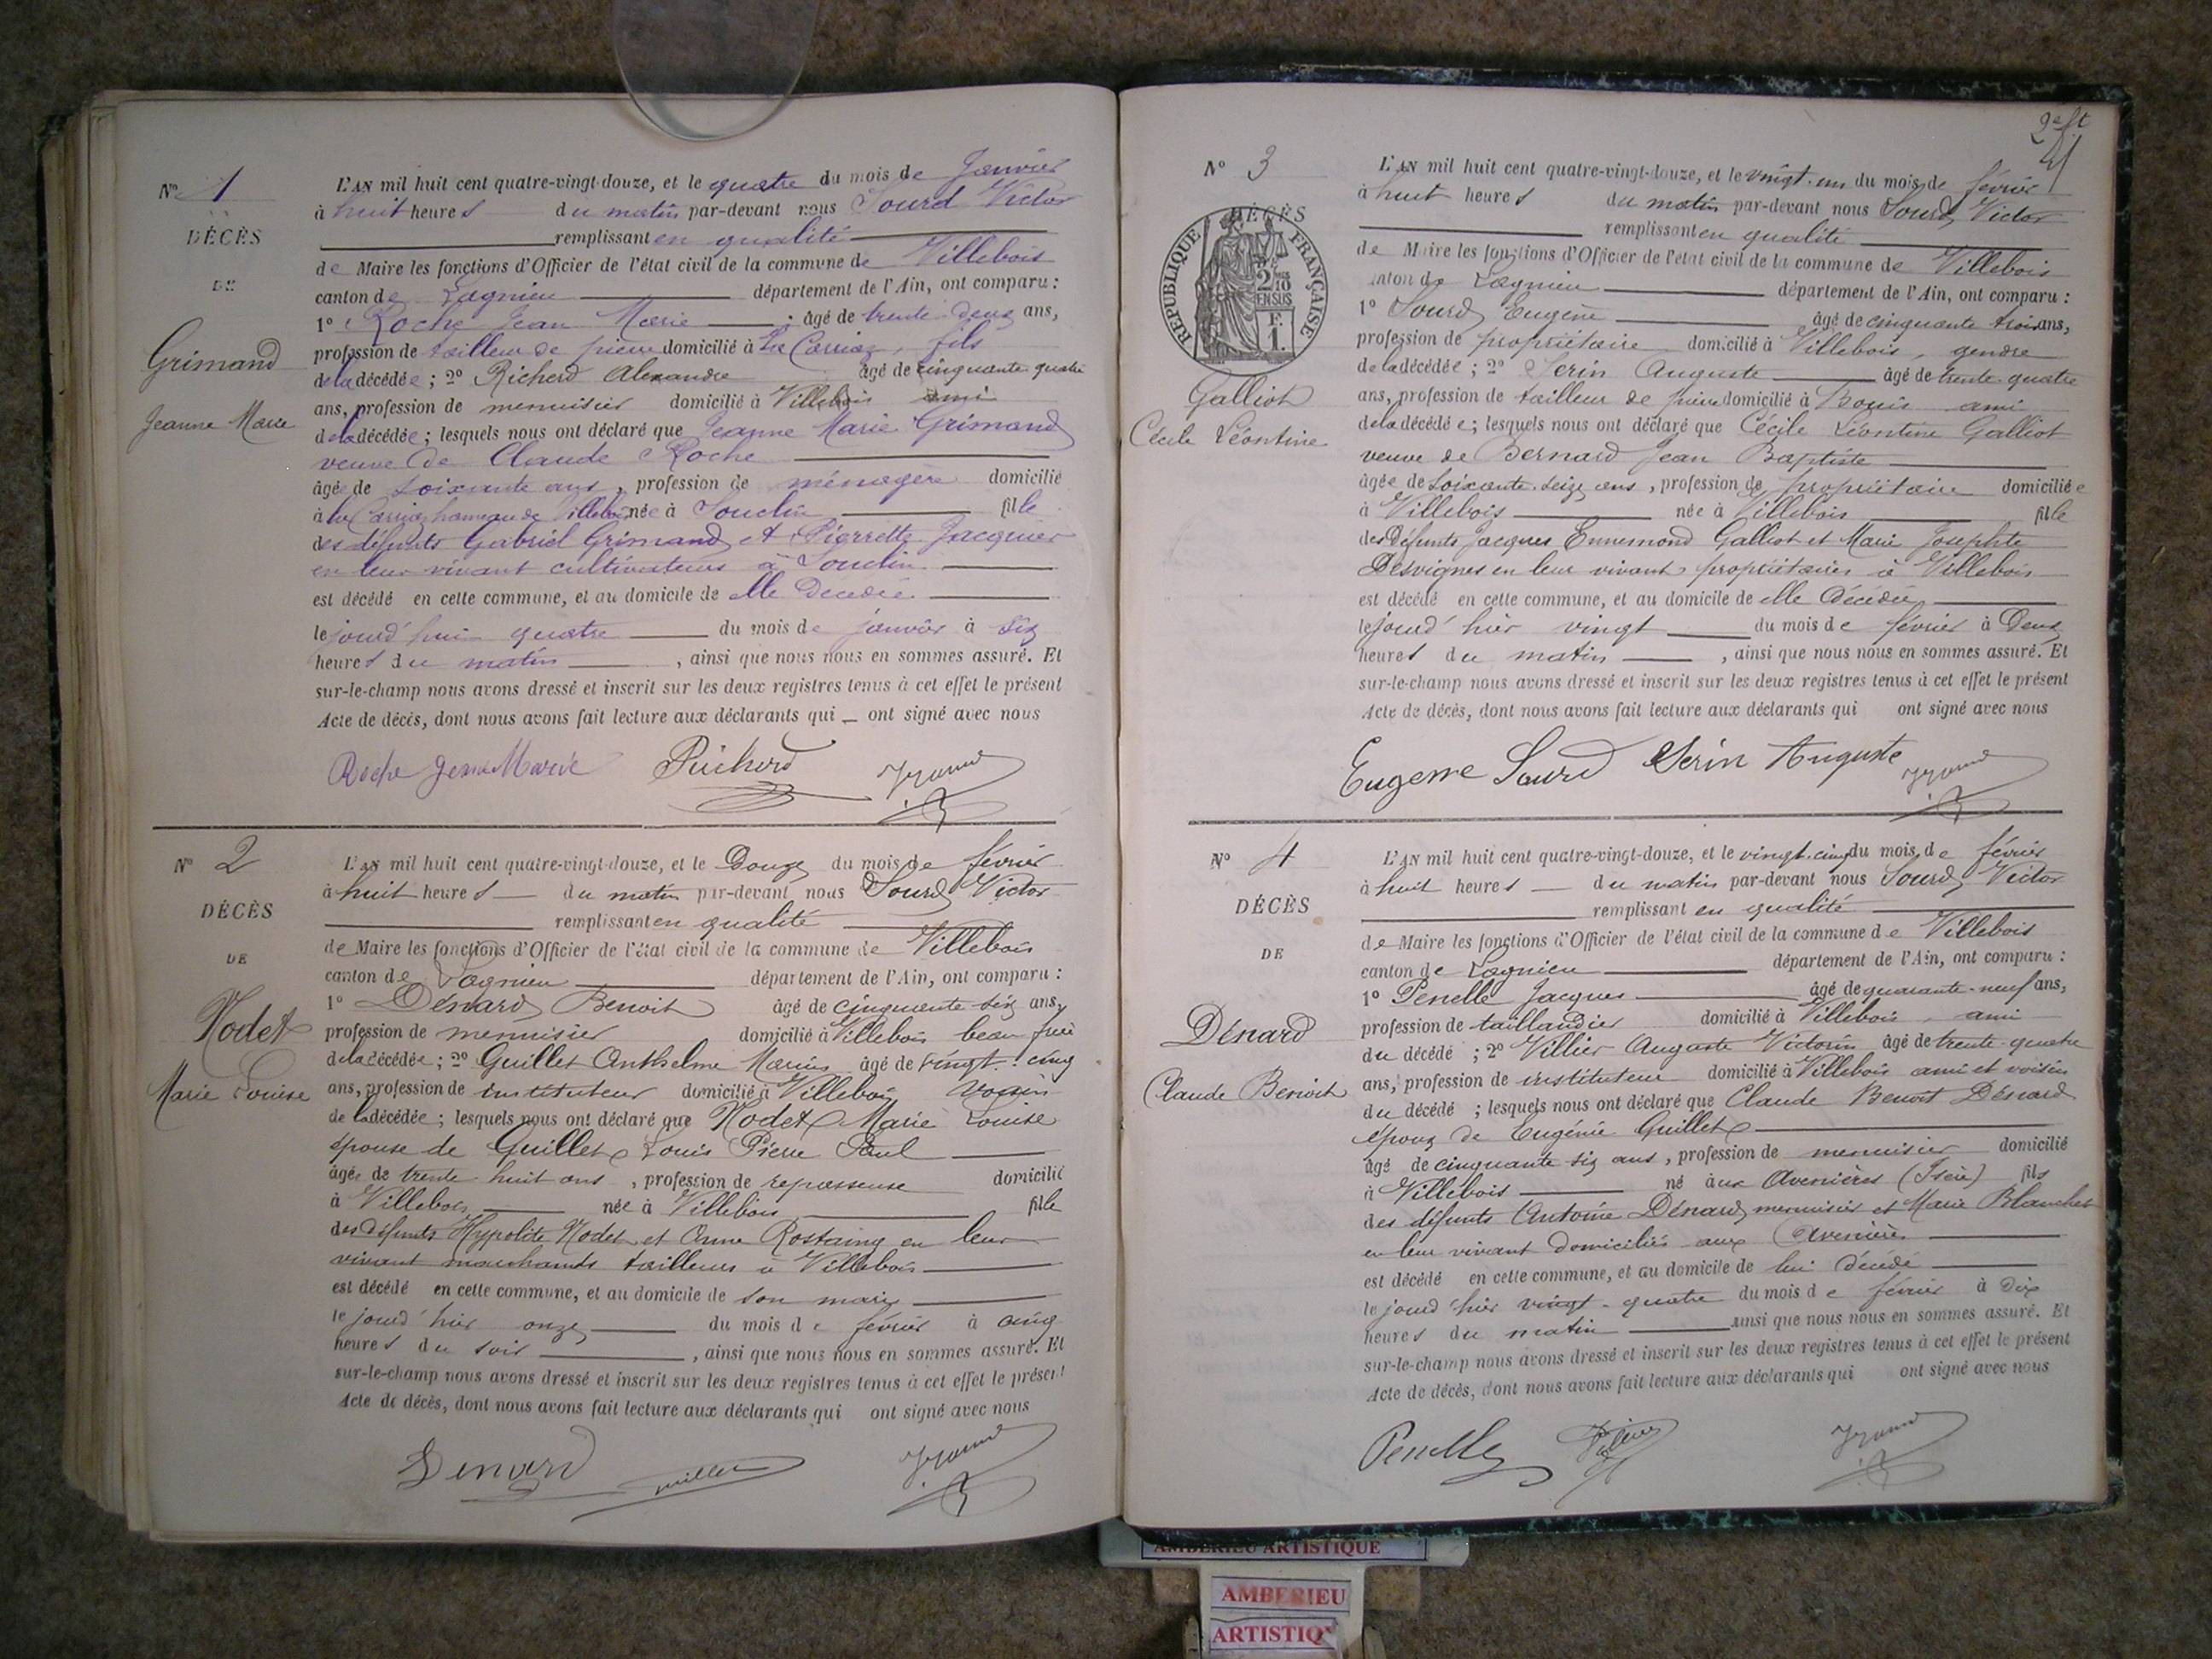 Nº 1
DÉCÈS
DE
Grimand
Jeanne Marie
L'AN mil huit cent quatre-vingt-douze, et le quatre du mois de Janvier
à huit heures du matin par-devant nous Sourd Victor
remplissant en qualité
de Maire les fonctions d'Officier de l'état civil de la commune de Villebois
canton de Lagnieu département de l'Ain, ont comparu :
1º Roche Jean Marie âgé de trente-deux ans,
profession de tailleur de pierre domicilié à La Carriaz, fils
de la décédée ; 2º Richerd Alexandre âgé de cinquante quatre
ans, profession de menuisier domicilié à Villebois ami
de la décédée ; lesquels nous ont déclaré que Jeanne Marie Grimand
veuve de Claude Roche
âgée de soixante ans, profession de ménagère domicilié
à la Carriaz hameau de Villebois née à Souclin fille
des défunts Gabriel Grimand et Pierrette Jacquier
en leur vivant cultivateurs à Souclin
est décédé en cette commune, et au domicile de elle décédée
le jourd'hui quatre du mois de janvier à six
heures du matin, ainsi que nous nous en sommes assuré. Et
sur-le-champ nous avons dressé et inscrit sur les deux registres tenus à cet effet le présent
Acte de décès, dont nous avons fait lecture aux déclarants qui ont signé avec nous
Roche Jean Marie Richerd
Nº 2
DÉCÈS
DE
Nodet
Marie Louise
L'AN mil huit cent quatre-vingt-douze, et le Douze du mois de février
à huit heures du matin par-devant nous Sourd Victor
remplissant en qualité
de Maire les fonctions d'Officier de l'état civil de la commune de Villebois
canton de Lagnieu département de l'Ain, ont comparu :
1º Dénard Benoit âgé de cinquante six ans,
profession de menuisier domicilié à Villebois beau frère
de la décédée ; 2º Guillet Anthelme Marius âgé de vingt-cinq
ans, profession de instituteur domicilié à Villebois voisin
de la décédée ; lesquels nous ont déclaré que Nodet Marie Louise
épouse de Guillet Louis Pierre Paul
âgée de trente-huit ans, profession de repasseuse domicilié
à Villebois née à Villebois fille
des défunts Hypolite Nodet et Anne Rostaing en leur
vivant marchands tailleurs à Villebois
est décédé en cette commune, et au domicile de son mari
le jourd'hier onze du mois de février à cinq
heures du soir, ainsi que nous nous en sommes assuré. Et
sur-le-champ nous avons dressé et inscrit sur les deux registres tenus à cet effet le présent
Acte de décès, dont nous avons fait lecture aux déclarants qui ont signé avec nous
Denard Guillet
Nº 3
DÉCÈS
RÉPUBLIQUE FRANÇAISE
2/10
EN SUS
F.
1.
Galliot
Cécile Léontine
L'AN mil huit cent quatre-vingt-douze, et le vingt-un du mois de février
à huit heures du matin par-devant nous Sourd Victor
remplissant en qualité
de Maire les fonctions d'Officier de l'état civil de la commune de Villebois
canton de Lagnieu département de l'Ain, ont comparu :
1º Sourd Eugène âgé de cinquante trois ans,
profession de propriétaire domicilié à Villebois, gendre
de la décédée ; 2º Serin Auguste âgé de trente-quatre
ans, profession de tailleur de pierre domicilié à Bouis ami
de la décédée ; lesquels nous ont déclaré que Cécile Léontine Galliot
veuve de Bernard Jean Baptiste
âgée de soixante-seize ans, profession de propriétaire domiciliée
à Villebois née à Villebois fille
des Défunts Jacques Ennemond Galliot et Marie Josephte
Desvignes en leur vivant propriétaires à Villebois
est décédé en cette commune, et au domicile de elle décédée
le jourd'hier vingt du mois de février à Deux
heures du matin, ainsi que nous nous en sommes assuré. Et
sur-le-champ nous avons dressé et inscrit sur les deux registres tenus à cet effet le présent
Acte de décès, dont nous avons fait lecture aux déclarants qui ont signé avec nous
Eugene Sourd Serin Auguste
Nº 4
DÉCÈS
DE
Dénard
Claude Benoit
L'AN mil huit cent quatre-vingt-douze, et le vingt-cinq du mois de février
à huit heures du matin par-devant nous Sourd Victor
remplissant en qualité
de Maire les fonctions d'Officier de l'état civil de la commune de Villebois
canton de Lagnieu département de l'Ain, ont comparu :
1º Penelle Jacques âgé de quarante-neuf ans,
profession de taillandier domicilié à Villebois, ami
du décédé ; 2º Villier Auguste Victorin âgé de trente-quatre
ans, profession de instituteur domicilié à Villebois ami et voisin
du décédé ; lesquels nous ont déclaré que Claude Benoit Dénard
époux de Eugénie Guillet
âgé de cinquante six ans, profession de menuisier domicilié
à Villebois né aux Avenières (Isère) fils
des défunts Antoine Dénard, menuisier et Marie Blanchet
en leur vivant domiciliés aux Avenières
est décédé en cette commune, et au domicile de lui décédé
le jourd'hier vingt-quatre du mois de février à dix
heures du matin ainsi que nous nous en sommes assuré. Et
sur-le-champ nous avons dressé et inscrit sur les deux registres tenus à cet effet le présent
Acte de décès, dont nous avons fait lecture aux déclarants qui ont signé avec nous
Penelle
AMBERIEU ARTISTIQUE
AMBERIEU
ARTISTIQ